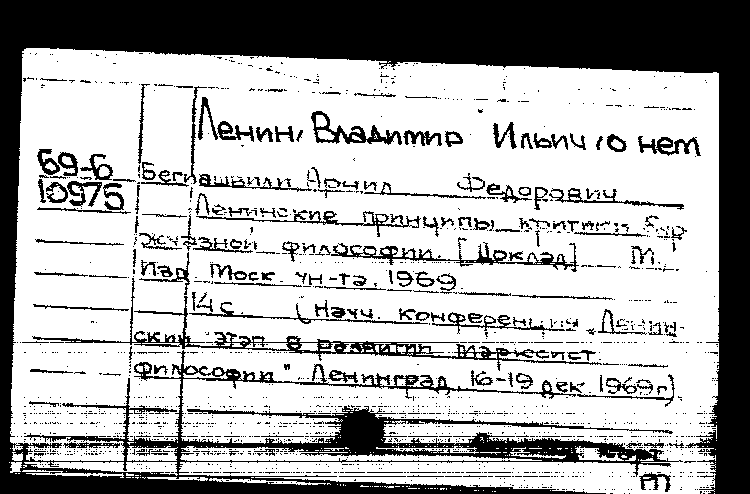 Ленин, Владимир Ильич, о нем
69-6
10975
Бегиашвили Арчил Федорович
Ленинские принципы критики бур
жуазной философии. [Доклад] М.,
Изд Моск. ун-та, 1969
14 с. (Науч. конференция „Ленин-
ский этап в развитии марксист.
философии" Ленинград, 16-19 дек 1969 г)